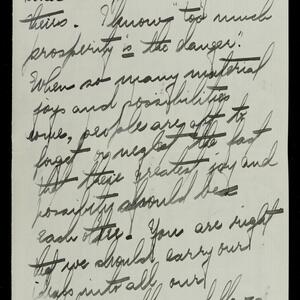 theirs. I know, "too much
prosperity is the danger".
When so many material
joys and possibilities
come, people are apt to
forget or neglect the fact
that their greatest joy and
possibility should be
each other. You are right
that we should carry our
ideals into all our